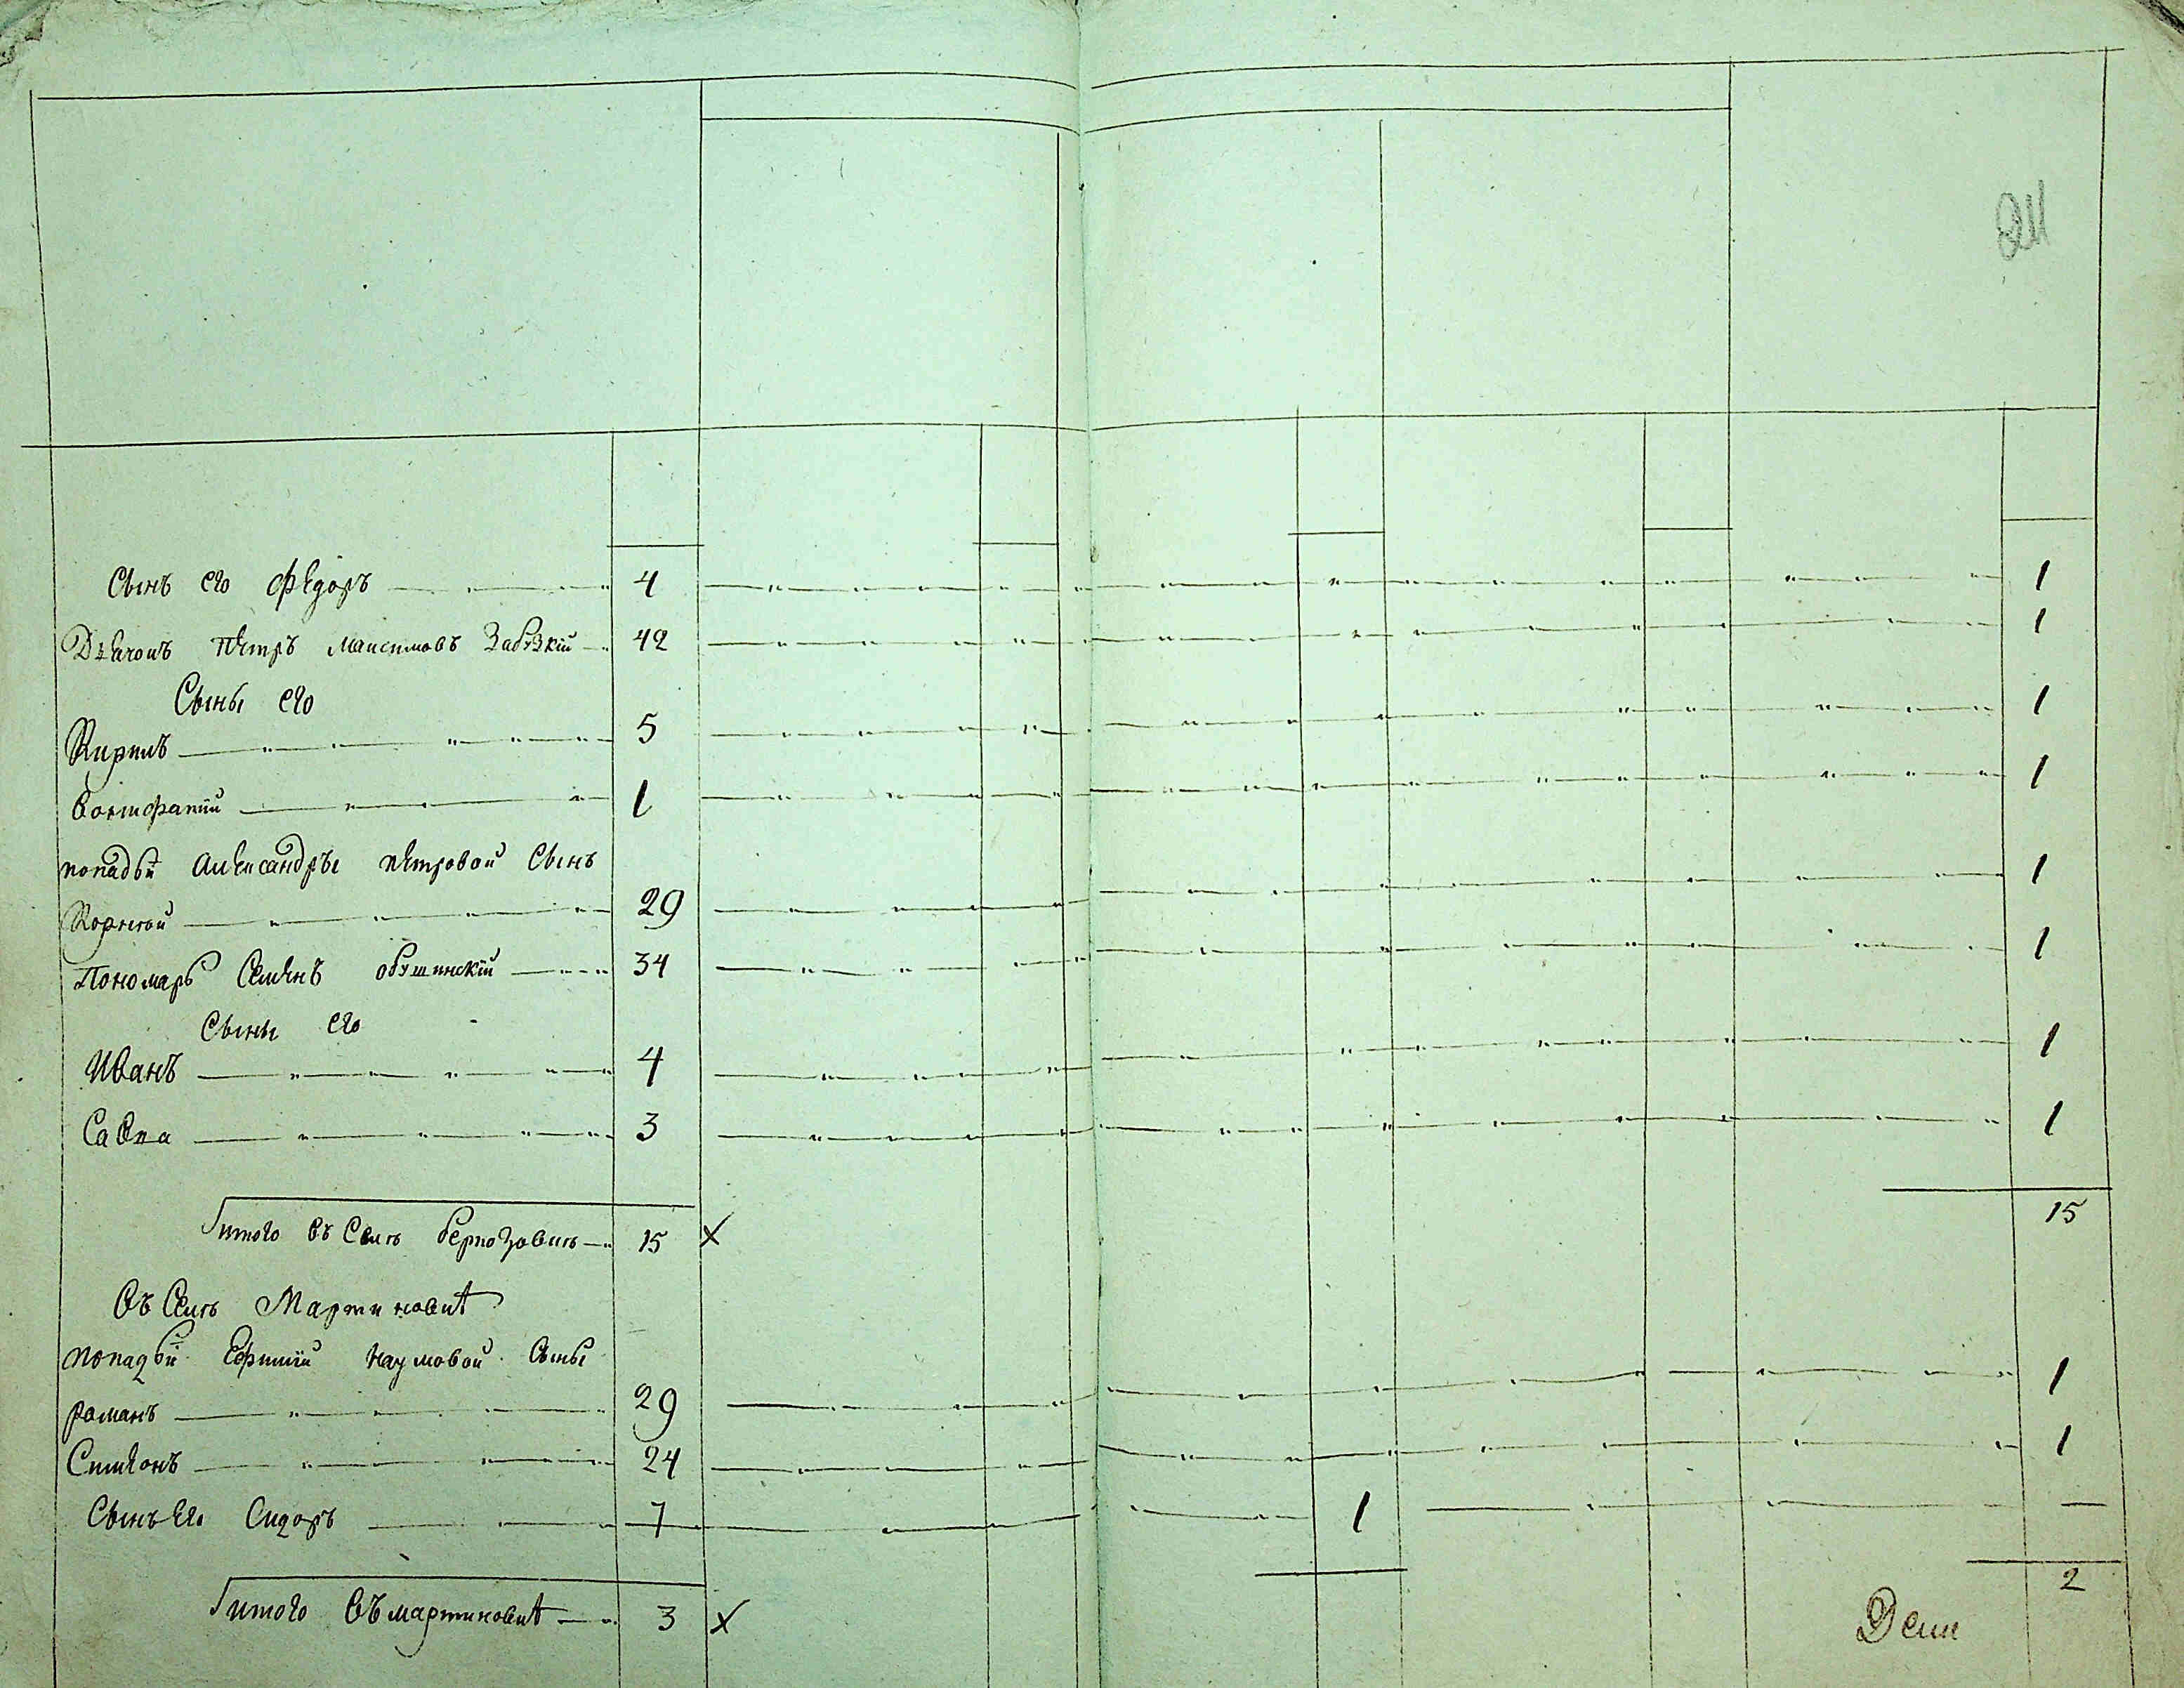 Сынъ его Федоръ 4 1
Дьячонъ Петръ Максимовъ Забузкій 42 1
Сыны его
Кирилъ 5 1
Вонифатій 1 1
попадьи Александры Петровой Сынъ
Корнѣй 29 1
Пономарь Семенъ 34 1
Сыны его
Иванъ 4 1
Савка 3 1
итого въ Селѣ 15 х 15
Въ Селѣ Мартиновкѣ
попадьи Наумовой Сыны
романъ 29 1
Симеонъ 24 1
Сынъ Его Сидоръ 7 1 —
итого въ мартиновкѣ 3 х 2